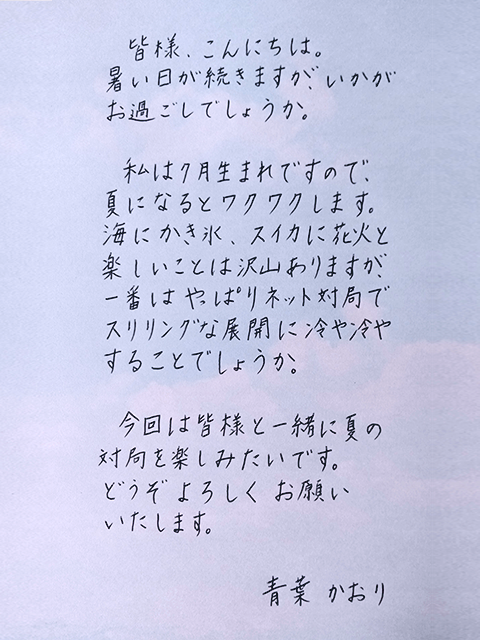 皆様、こんにちは。
暑い日が続きますが、いかが
お過ごしでしょうか。
私は7月生まれですので、
夏になるとワクワクします。
海にかき氷、スイカに花火と
楽しいことは沢山ありますが、
一番はやっぱりネット対局で
スリリングな展開に冷や冷や
することでしょうか。
今回は皆様と一緒に夏の
対局を楽しみたいです。
どうぞよろしくお願い
いたします。
青葉 かおり